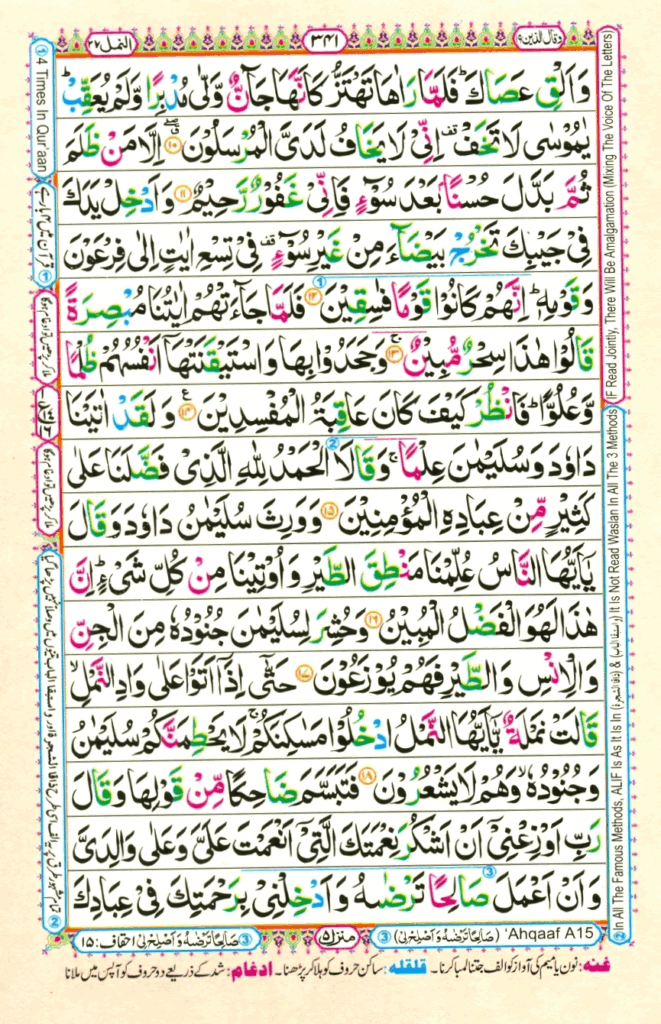 النمل ٢٧
٣٤١
وقال الذین ١٩
وَاَلۡقِ عَصَاكَ ؕ فَلَمَّا رَاٰهَا تَهۡتَزُّ كَاَنَّهَا جَآنٌّ وَّلّٰى مُدۡبِرًا وَّلَمۡ يُعَقِّبۡ ؕ
يٰمُوۡسٰى لَا تَخَفۡ اِنِّىۡ لَا يَخَافُ لَدَىَّ الۡمُرۡسَلُوۡنَ ۝۱۰ اِلَّا مَنۡ ظَلَمَ
ثُمَّ بَدَّلَ حُسۡنًۢا بَعۡدَ سُوۡٓءٍ فَاِنِّىۡ غَفُوۡرٌ رَّحِيۡمٌ ۝۱۱ وَاَدۡخِلۡ يَدَكَ
فِىۡ جَيۡبِكَ تَخۡرُجۡ بَيۡضَآءَ مِنۡ غَيۡرِ سُوۡٓءٍ فِىۡ تِسۡعِ اٰيٰتٍ اِلٰى فِرۡعَوۡنَ
وَقَوۡمِهٖؕ اِنَّهُمۡ كَانُوۡا قَوۡمًا فٰسِقِيۡنَ ۝۱۲ فَلَمَّا جَآءَتۡهُمۡ اٰيٰتُنَا مُبۡصِرَةً
قَالُوۡا هٰذَا سِحۡرٌ مُّبِيۡنٌ ۝۱۳ وَجَحَدُوۡا بِهَا وَاسۡتَيۡقَنَتۡهَاۤ اَنۡفُسُهُمۡ ظُلۡمًا
وَّعُلُوًّا ؕ فَانْظُرۡ كَيۡفَ كَانَ عَاقِبَةُ الۡمُفۡسِدِيۡنَ ۝۱۴ وَلَقَدۡ اٰتَيۡنَا
دَاوٗدَ وَسُلَيۡمٰنَ عِلۡمًا ۚ وَقَالَا الۡحَمۡدُ لِلّٰهِ الَّذِىۡ فَضَّلَنَا عَلٰى
كَثِيۡرٍ مِّنۡ عِبَادِهِ الۡمُؤۡمِنِيۡنَ ۝۱۵ وَوَرِثَ سُلَيۡمٰنُ دَاوٗدَ وَقَالَ
يٰۤاَيُّهَا النَّاسُ عُلِّمۡنَا مَنۡطِقَ الطَّيۡرِ وَاُوۡتِيۡنَا مِنۡ كُلِّ شَىۡءٍ ؕ اِنَّ
هٰذَا لَهُوَ الۡفَضۡلُ الۡمُبِيۡنُ ۝۱۶ وَحُشِرَ لِسُلَيۡمٰنَ جُنُوۡدُهٗ مِنَ الۡجِنِّ
وَالۡاِنۡسِ وَالطَّيۡرِ فَهُمۡ يُوۡزَعُوۡنَ ۝۱۷ حَتّٰٓى اِذَاۤ اَتَوۡا عَلٰى وَادِ النَّمۡلِۙ
قَالَتۡ نَمۡلَةٌ يّٰۤاَيُّهَا النَّمۡلُ ادۡخُلُوۡا مَسٰكِنَكُمۡ ۚ لَا يَحۡطِمَنَّكُمۡ سُلَيۡمٰنُ
وَجُنُوۡدُهٗۙ وَهُمۡ لَا يَشۡعُرُوۡنَ ۝۱۸ فَتَبَسَّمَ ضَاحِكًا مِّنۡ قَوۡلِهَا وَقَالَ
رَبِّ اَوۡزِعۡنِىۡۤ اَنۡ اَشۡكُرَ نِعۡمَتَكَ الَّتِىۡۤ اَنۡعَمۡتَ عَلَىَّ وَعَلٰى وَالِدَىَّ
وَاَنۡ اَعۡمَلَ صَالِحًا تَرۡضٰٮهُ وَاَدۡخِلۡنِىۡ بِرَحۡمَتِكَ فِىۡ عِبَادِكَ
IF Read Jointly, There Will Be Amalgamation (Mixing The Voice Of The Letters)
② In All The Famous Methods, ALIF Is As It Is In (ذاقا الشجرة) & (واستبقا الباب) It Is Not Read Waslan In All The 3 Methods
① 4 Times In Qur'aan
ملا کر پڑھیں تو ادغام ہوگا
ملا کر پڑھیں تو ادغام ہوگا
③ صَالِحًا تَرۡضٰٮهُ وَاَصۡلِحۡ لِىۡ احقاف: ۱۵
منزل ۵
③ (صَالِحًا تَرۡضٰٮهُ وَاَصۡلِحۡ لِىۡ) 'Ahqaaf A15
غنه: نون یا میم کی آواز کو الف جتنا لمبا کرنا۔ قلقله: ساکن حروف کو ہلا کر پڑھنا۔ ادغام: شد کے ذریعے دو حروف کو آپس میں ملانا